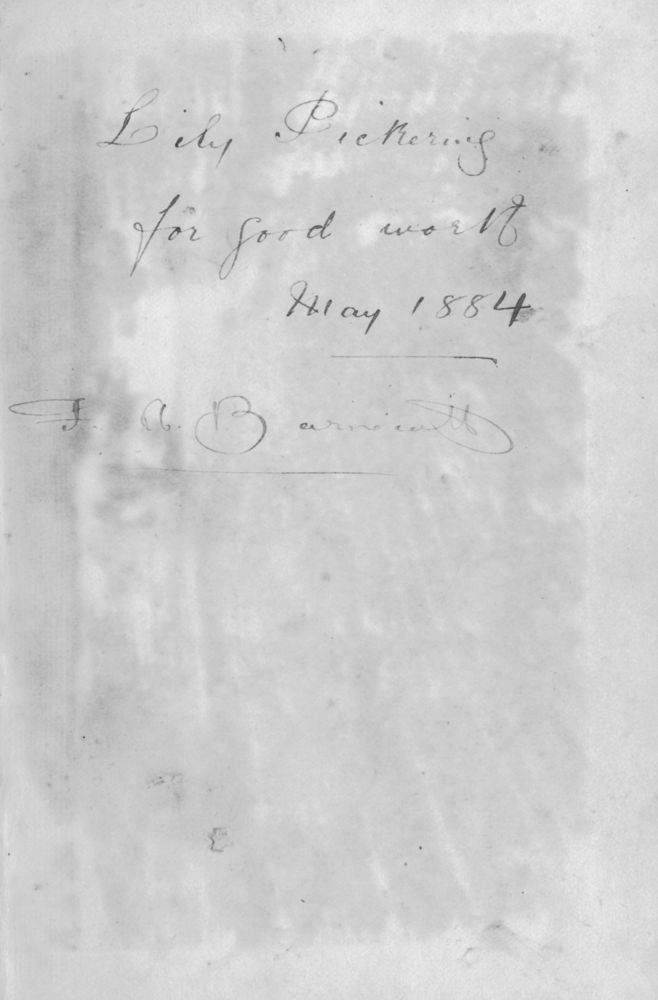 Lily Pickering
for good work
May 1884
F. A. Barnicoatt